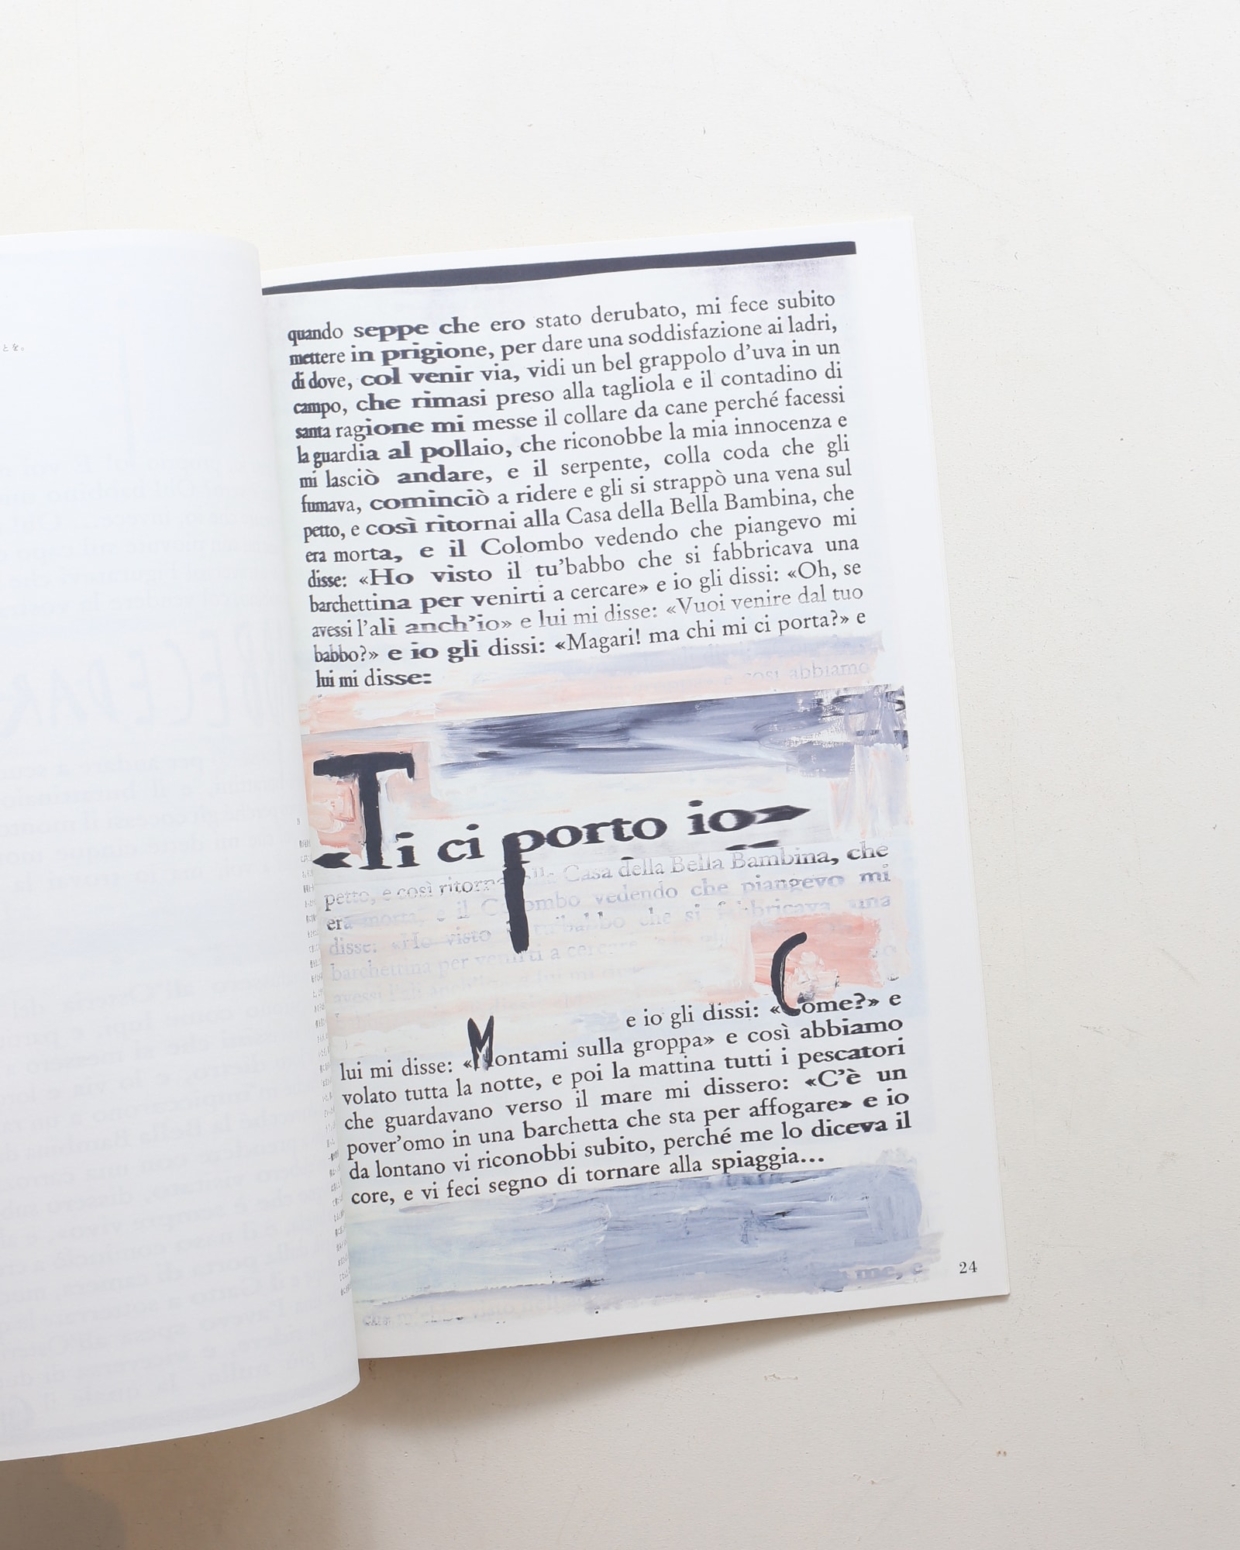 quando seppe che ero stato derubato, mi fece subito
mettere in prigione, per dare una soddisfazione ai ladri,
di dove, col venir via, vidi un bel grappolo d'uva in un
campo, che rimasi preso alla tagliola e il contadino di
santa ragione mi messe il collare da cane perché facessi
la guardia al pollaio, che riconobbe la mia innocenza e
mi lasciò andare, e il serpente, colla coda che gli
fumava, cominciò a ridere e gli si strappò una vena sul
petto, e così ritornai alla Casa della Bella Bambina, che
era morta, e il Colombo vedendo che piangevo mi
disse: «Ho visto il tu'babbo che si fabbricava una
barchettina per venirti a cercare» e io gli dissi: «Oh, se
avessi l'ali anch'io» e lui mi disse: «Vuoi venire dal tuo
babbo?» e io gli dissi: «Magari! ma chi mi ci porta?» e
lui mi disse:
così abbiamo
«Ti ci porto io»
petto, e così ritorna alla Casa della Bella Bambina, che
era morta, e il Colombo vedendo che piangevo mi
disse: «Ho visto il tu'babbo che si fabbricava una
barchettina per venirti a cercare
avessi l'ali
e io gli dissi: «Come?» e
lui mi disse: «Montami sulla groppa» e così abbiamo
volato tutta la notte, e poi la mattina tutti i pescatori
che guardavano verso il mare mi dissero: «C'è un
pover'omo in una barchetta che sta per affogare» e io
da lontano vi riconobbi subito, perché me lo diceva il
core, e vi feci segno di tornare alla spiaggia...
me, e
24